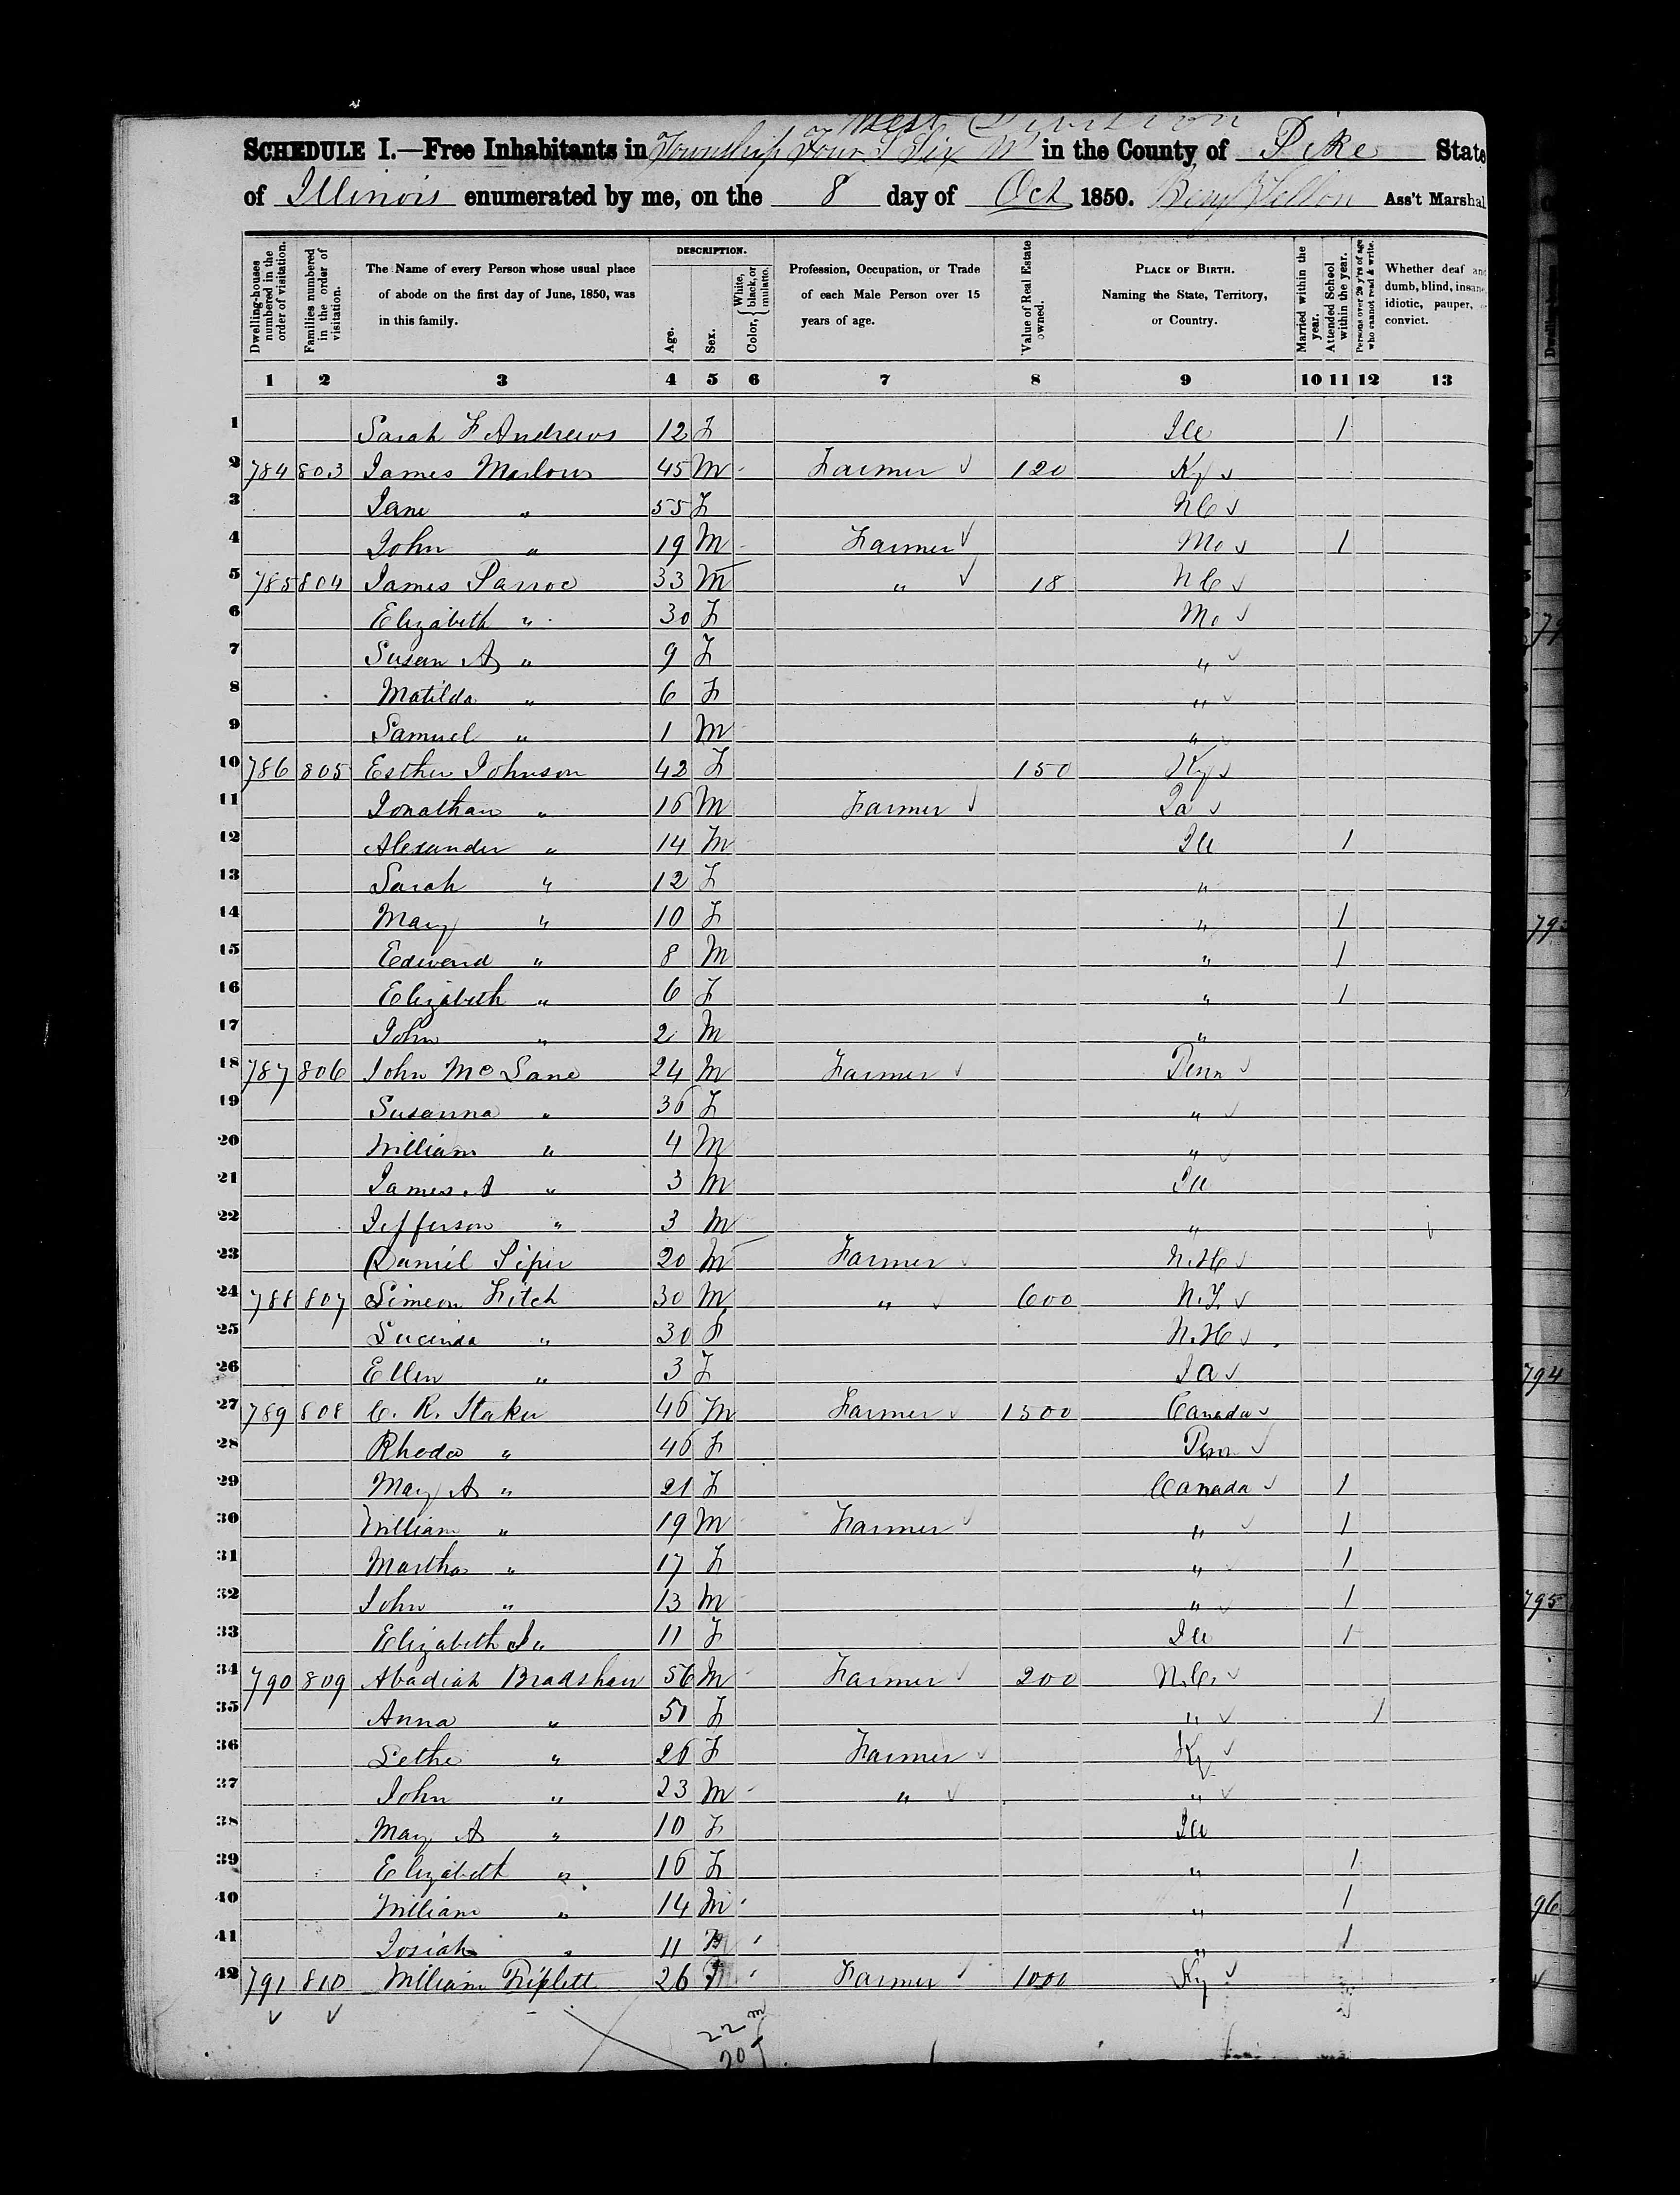 West Division
SCHEDULE I.—Free Inhabitants in Township Four S Six W in the County of Pike State
of Illinois enumerated by me, on the 8 day of Oct 1850. Ass't Marshal
Dwelling-houses numbered in the order of visitation.
Families numbered in the order of visitation.
The Name of every Person whose usual place of abode on the first day of June, 1850, was in this family.
DESCRIPTION.
Age.
Sex.
Color, { White, black, or mulatto.
Profession, Occupation, or Trade of each Male Person over 15 years of age.
Value of Real Estate owned.
PLACE OF BIRTH. Naming the State, Territory, or Country.
Married within the year.
Attended School within the year.
Persons over 20 y'rs of age who cannot read & write.
Whether deaf and dumb, blind, insane, idiotic, pauper, convict.
1 2 3 4 5 6 7 8 9 10 11 12 13
1 Sarah F Andrews 12 F Ill 1
2 784 803 James Marlow 45 M Farmer 120 Ky
3 Jane " 55 F NC
4 John " 19 M Farmer Mo 1
5 785 804 James 33 M " 18 NC
6 Elizabeth " 30 F Mo
7 Susan A " 9 F "
8 Matilda " 6 F "
9 Samuel " 1 M "
10 786 805 Esther Johnson 42 F 150 Ky
11 Jonathan " 16 M Farmer Ia
12 Alexander " 14 M Ill 1
13 Sarah " 12 F "
14 Mary " 10 F " 1
15 Edward " 8 M " 1
16 Elizabeth " 6 F " 1
17 John " 2 M "
18 787 806 John McLane 24 M Farmer Penn
19 Susanna " 36 F "
20 William " 4 M "
21 James A " 3 M Ill
22 Jefferson " 3 M "
23 Daniel 20 M Farmer N.H
24 788 807 Simeon Fitch 30 M " 600 N.Y.
25 Lucinda " 30 F N.H
26 Ellen " 3 F Ia
27 789 808 C. R. Staker 46 M Farmer 1500 Canada
28 Rhoda " 46 F Penn
29 Mary A " 21 F Canada 1
30 William " 19 M Farmer " 1
31 Martha " 17 F " 1
32 John " 13 M " 1
33 Elizabeth J " 11 F Ill 1
34 790 809 Abadiah Bradshaw 56 M Farmer 200 N.C.
35 Anna " 51 F " 1
36 Lethe " 26 F Farmer Ky
37 John " 23 M " "
38 Mary A " 10 F Ill
39 Elizabeth " 16 F " 1
40 William " 14 M " 1
41 Josiah " 11 M " 1
42 791 810 William Triplett 26 Farmer 1000 Ky
22 m
20 f
793
794
795
96